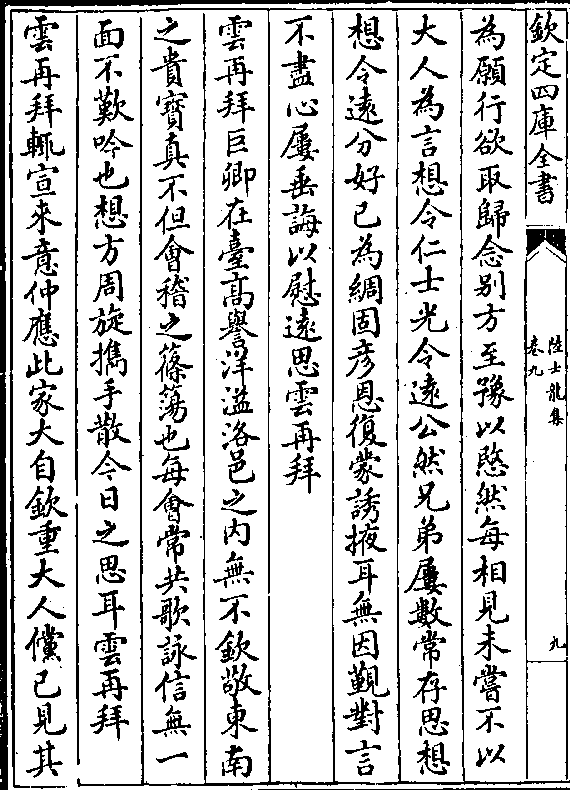 欽定四庫全書
陸士龍集
卷九
九
為願行欲取歸念别方至豫以愍然每相見未嘗不以
大人為言想令仁士光令遠公然兄弟屢數常存思想
想令遠分好已為綢固彦恩復蒙誘掖耳無因覲對言
不盡心屢垂誨以慰遠思雲再拜
雲再拜巨卿在臺高譽洋溢洛邑之内無不欽敬東南
之貴寶真不但會稽之篠蕩也每會常共歌詠信無一
面不歎吟也想方周旋攜手散今日之思耳雲再拜
雲再拜輒宣來意仲應此家大自欽重大人儻已見其